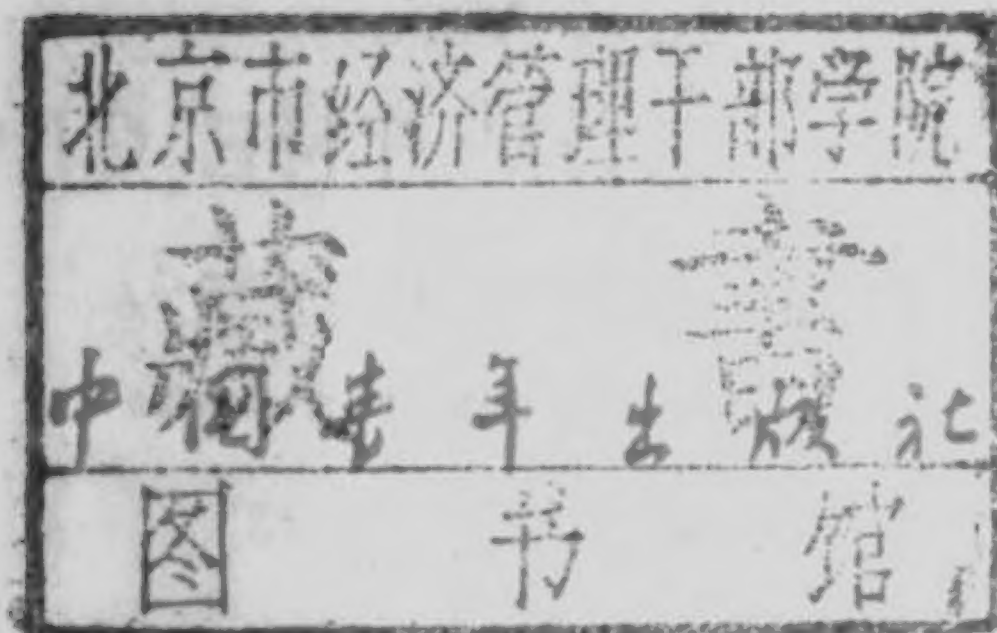 北京市经济管理干部学院
藏書
中国青年出版社
图书馆